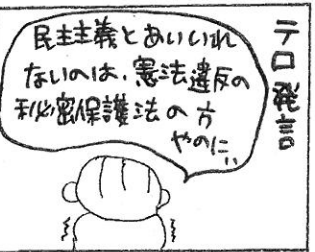 テロ発言
民主主義とあいいれ
ないのは、憲法違反の
秘密保護法の方
やのに、、